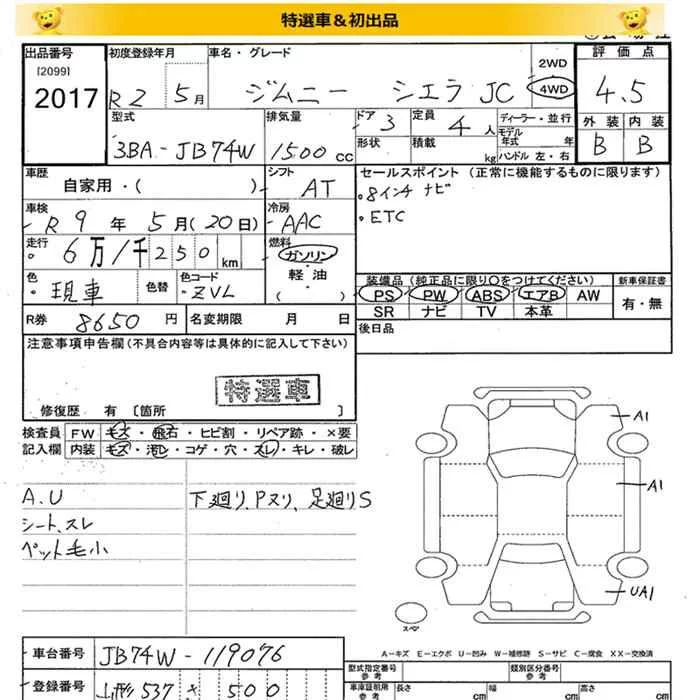 特選車＆初出品
出品番号 初度登録年月 車名・グレード 2WD 評価点
[2099]
2017 R2 5月 ジムニー シエラ JC 4WD 4.5
型式 排気量 ドア 3 定員 4人 ディーラー・並行 外装 内装
3BA-JB74W 1500cc 形状 積載 kg モデル年式 年 B B
ハンドル 左・右
車歴 シフト セールスポイント (正常に機能するものに限ります)
自家用・( ) AT ・8インチナビ
車検 冷房 ・ETC
R9年5月(20日) AAC
走行 燃料
6万1千250km ガソリン・軽油・( )
色 色替 色コード 装備品 (純正品に限り〇をつけてください) 新車保証書
現車 ZVL PS PW ABS エアB AW 有・無
R券 8650円 名変期限 月 日 SR ナビ TV 本革
注意事項申告欄(不具合内容等は具体的に記入して下さい) 後日品
特選車
修復歴 有 [箇所 ]
検査員 FW キズ・飛石・ヒビ割・リペア跡・×要
記入欄 内装 キズ・汚レ・コゲ・穴・スレ・キレ・破レ
A1
A1
A.U 下廻りPヌリ、足廻りS
シート、スレ
ペット毛小
UA1
スペア
A－キズ E－エクボ U－凹み W－補修跡 S－サビ C－腐食 XX－交換済
車台番号 JB74W-119076 型式指定番号 参考 類別区分番号 参考
登録番号 537 500 車庫証明用 参考 長さ cm 幅 cm 高さ cm